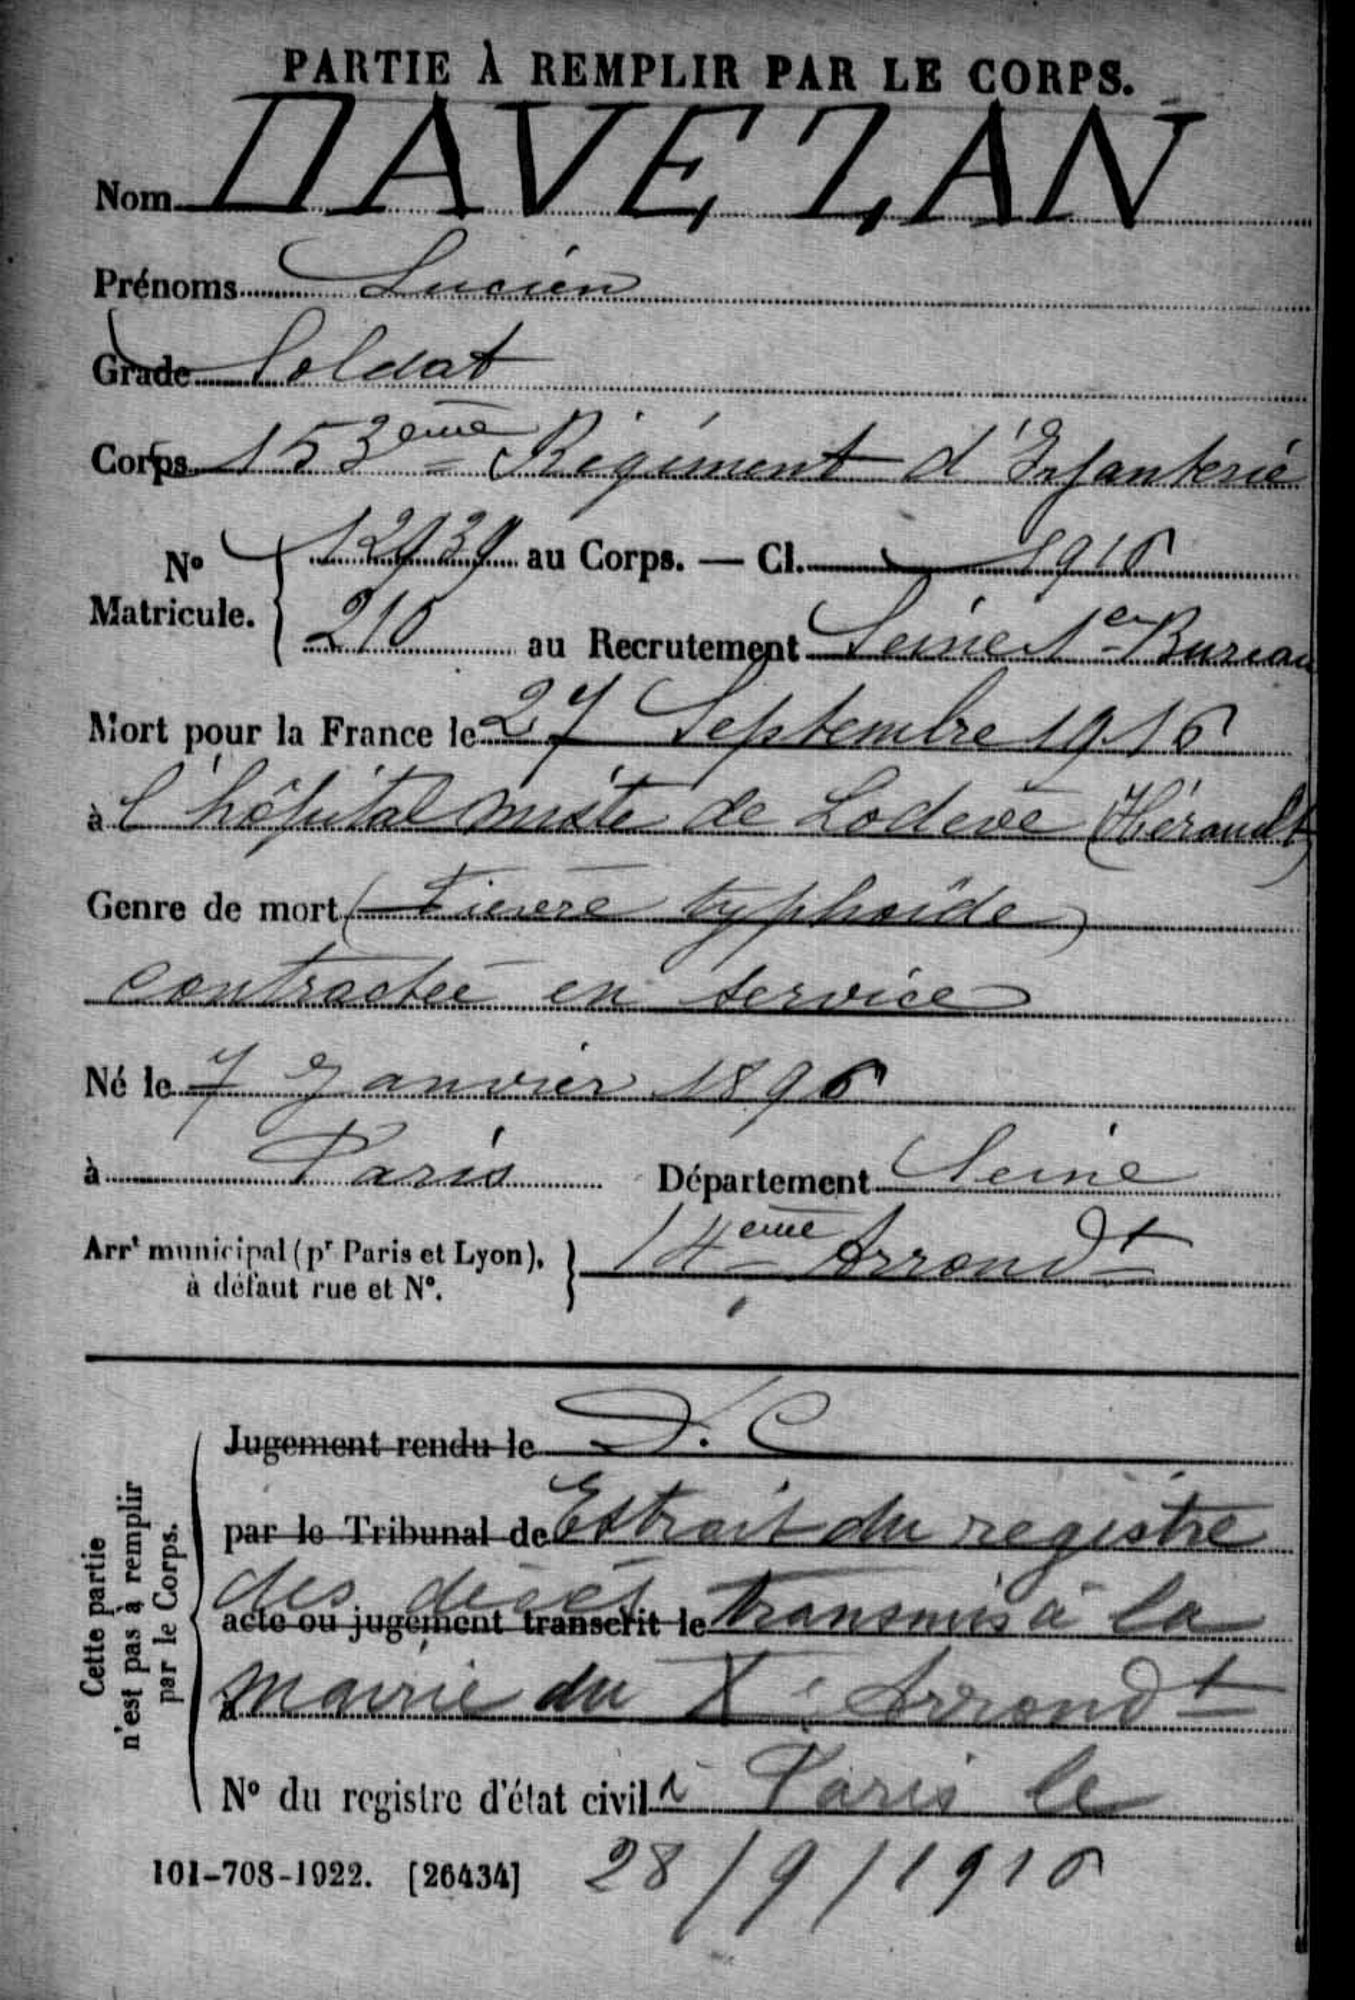 PARTIE À REMPLIR PAR LE CORPS.
Nom DAVEZAN
Prénoms Lucien
Grade Soldat
Corps 153ème Régiment d'Infanterie
No Matricule. 12939 au Corps. — Cl. 1916
210 au Recrutement Seine 1er Bureau
Mort pour la France le 27 Septembre 1916
à l'hôpital mixte de Lodève (Hérault)
Genre de mort (Fièvre typhoïde)
contractée en service
Né le 7 Janvier 1896
à Paris Département Seine
Arrt municipal (pr Paris et Lyon), à défaut rue et No. 14ème Arrondt
Cette partie n'est pas à remplir par le Corps.
Jugement rendu le D.C
par le Tribunal de Extrait du registre
des décès
acte ou jugement transcrit le transmis à la
à mairie du X Arrondt
No du registre d'état civil à Paris le
101-708-1922. [26434] 28/9/1916